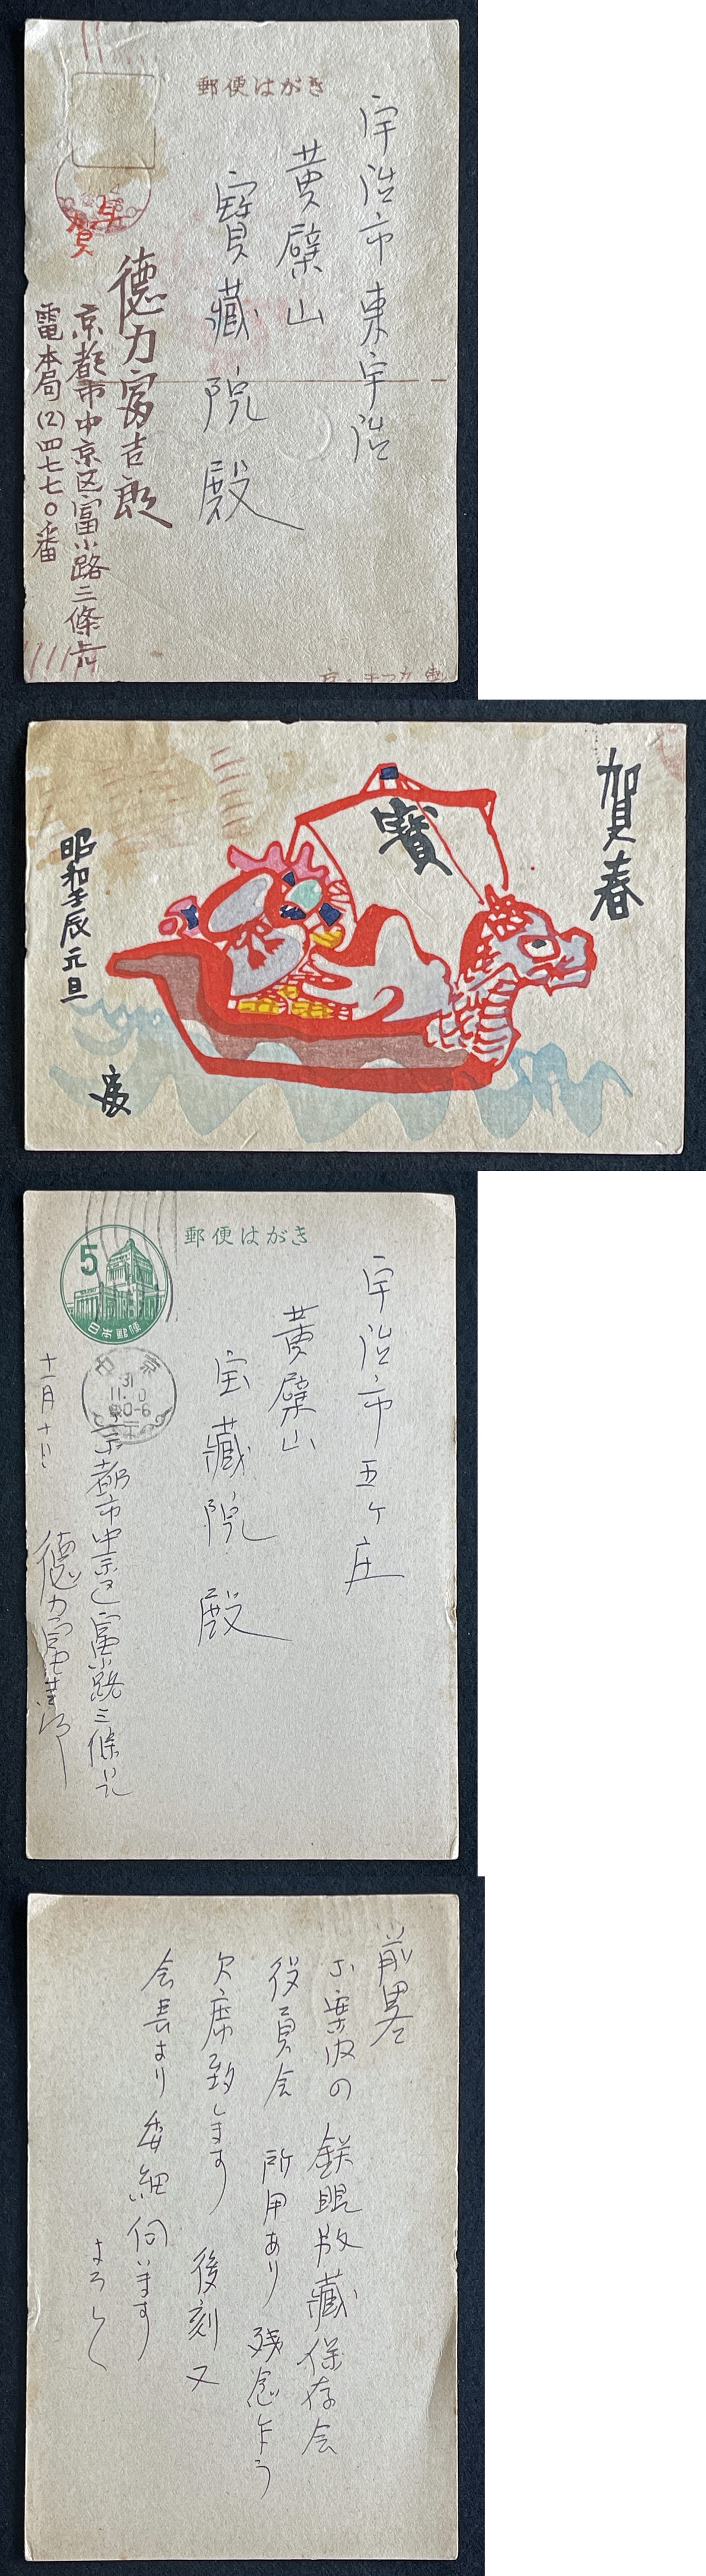 郵便はがき
宇治市東宇治
黄檗山
寶藏院殿
年賀
德力富吉郎
京都市中京区富小路三條上ル
電本局(2)四七七〇番
賀春
寶
昭和壬辰元旦
郵便はがき
5
日本郵便
中京
31
11.10
宇治市五ケ庄
黄檗山
宝藏院殿
京都市中京区富小路三條上ル
十一月十日
德力富吉郎
前畧
鉄眼版藏保存会
役員会 所用あり 残念乍ら
欠席致します 後刻又
会長より委細伺います
よろしく